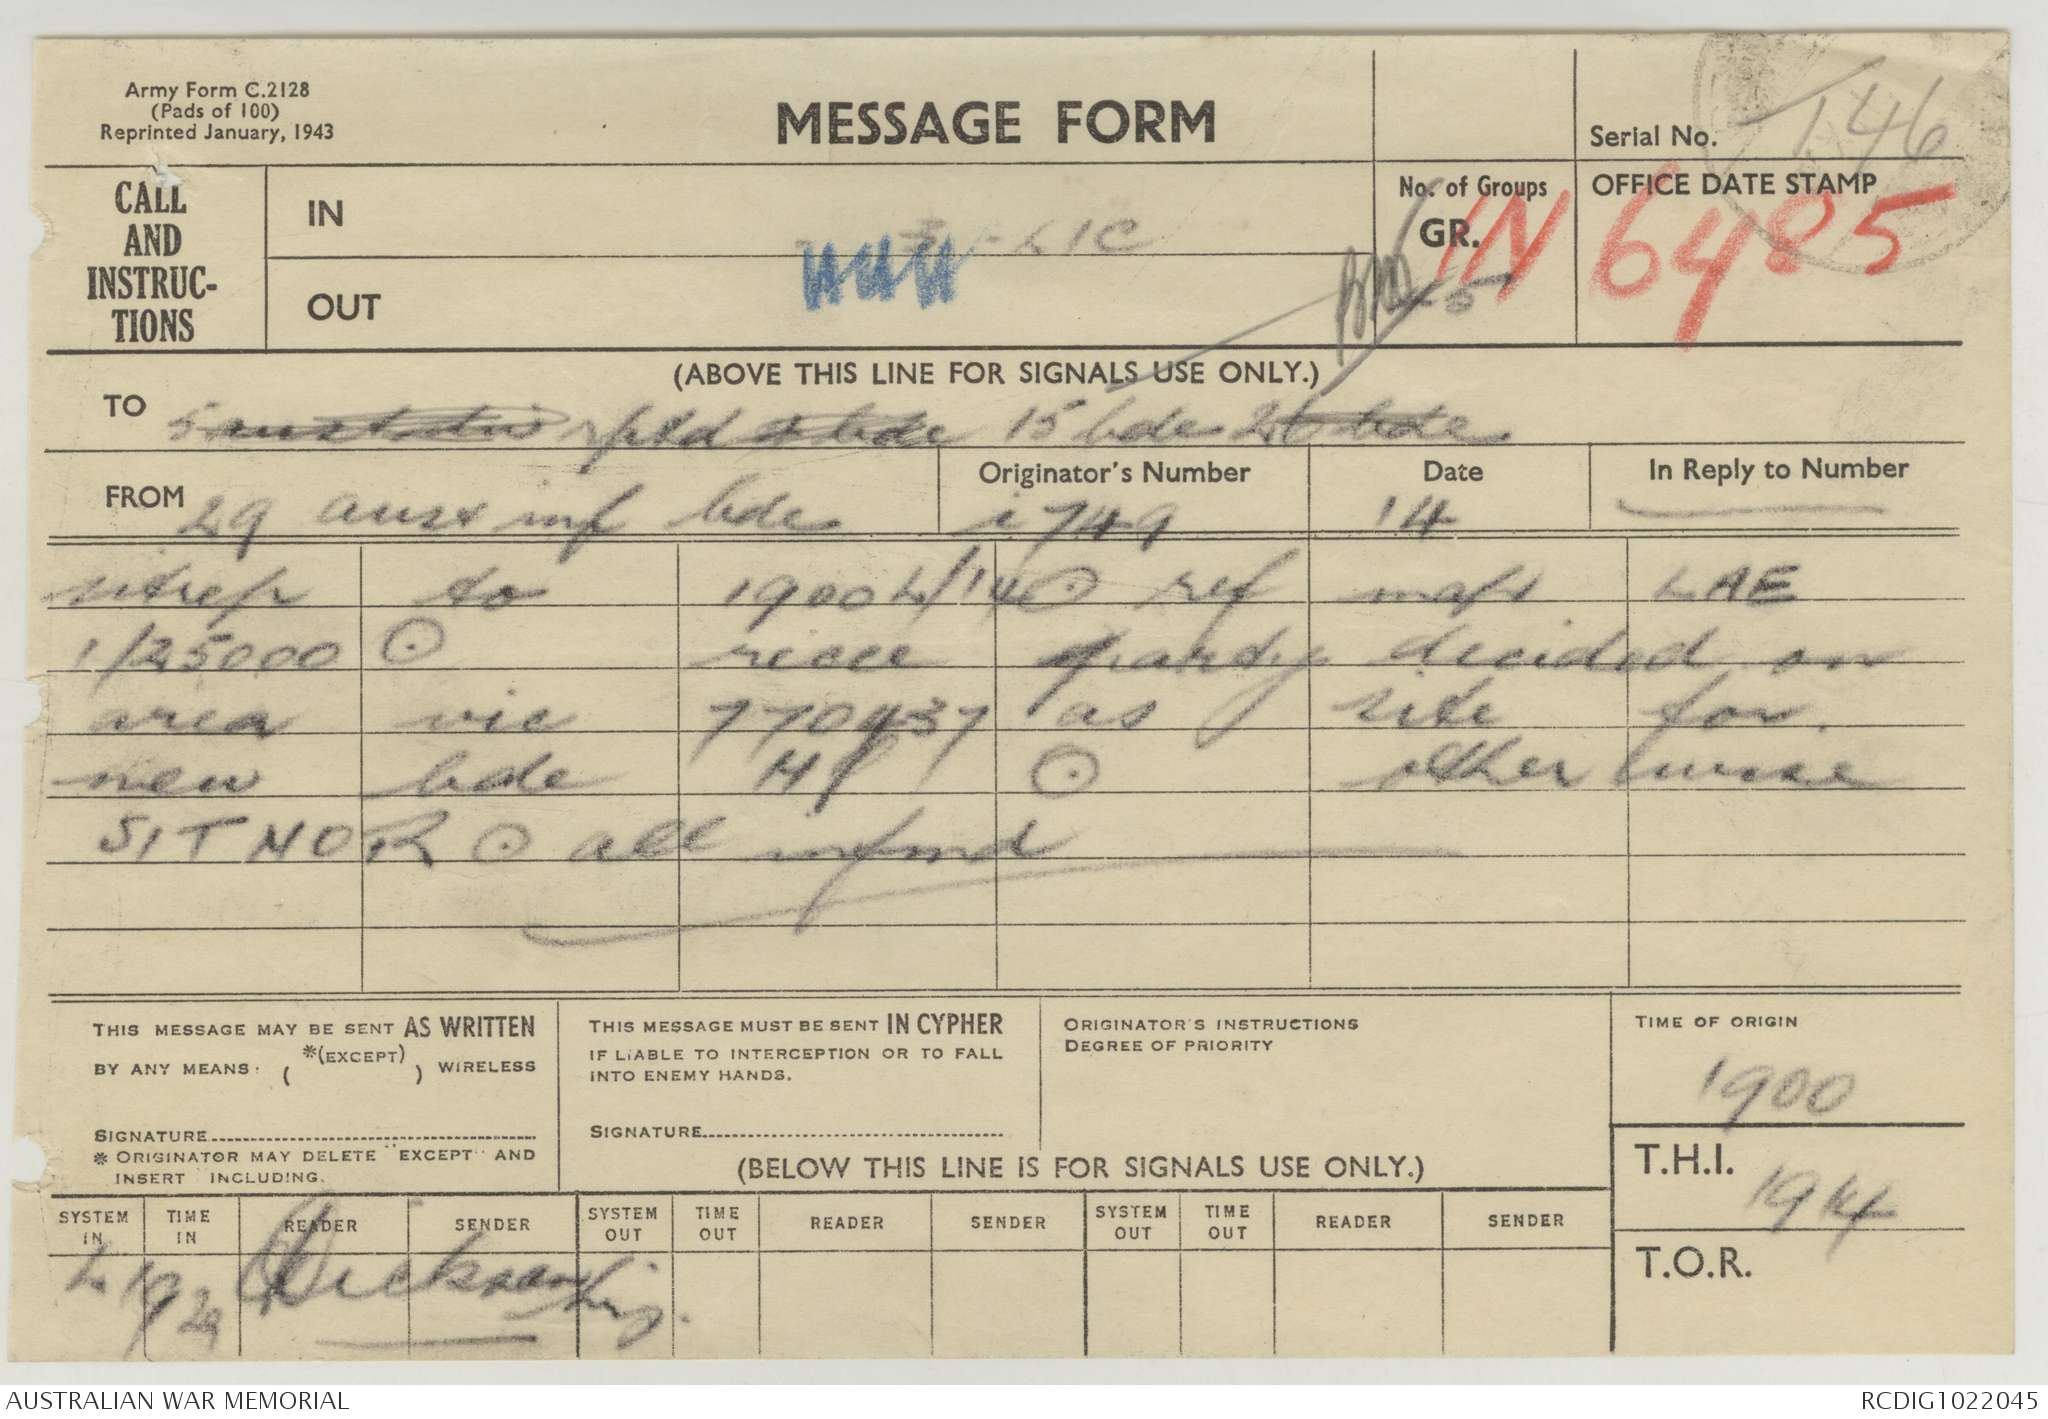 Army Form C.2128
(Pads of 100)
Reprinted January, 1943
MESSAGE FORM
Serial No. 146
CALL AND INSTRUC-TIONS
IN
OUT
No. of Groups
GR. 45
OFFICE DATE STAMP
IN 6485
(ABOVE THIS LINE FOR SIGNALS USE ONLY.)
TO 5 aust div rptd 4 bde 15 bde 26 bde
FROM 29 aust inf bde
Originator's Number i 749
Date 14
In Reply to Number
sitrep to 1900L/14 ⊙ ref maps LAE
1/25000 ⊙ recce party decided on
area vic 770437 as site for
new bde HQ ⊙ otherwise
SITNOR ⊙ all infmd
THIS MESSAGE MAY BE SENT AS WRITTEN
BY ANY MEANS. ( *(EXCEPT) ) WIRELESS
SIGNATURE
* ORIGINATOR MAY DELETE "EXCEPT" AND
INSERT "INCLUDING.
THIS MESSAGE MUST BE SENT IN CYPHER
IF LIABLE TO INTERCEPTION OR TO FALL
INTO ENEMY HANDS.
SIGNATURE
ORIGINATOR'S INSTRUCTIONS
DEGREE OF PRIORITY
TIME OF ORIGIN
1900
T.H.I. 1914
T.O.R.
(BELOW THIS LINE IS FOR SIGNALS USE ONLY.)
SYSTEM IN
TIME IN
READER
SENDER
SYSTEM OUT
TIME OUT
READER
SENDER
SYSTEM OUT
TIME OUT
READER
SENDER
L 1929 Dickson Sig.
AUSTRALIAN WAR MEMORIAL
RCDIG1022045